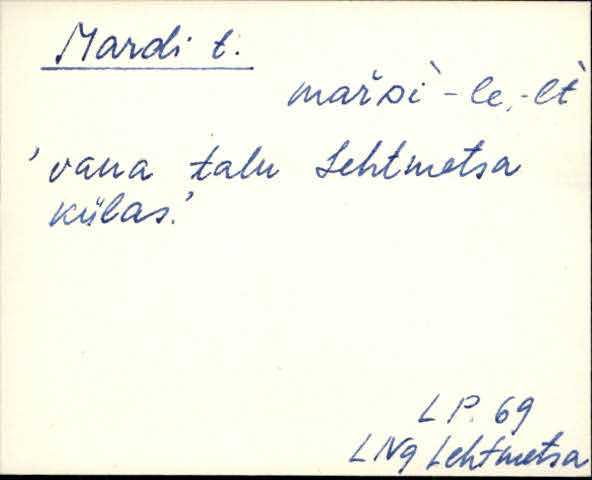 Mardi t.
mařDì -le, -lt̀
'vana talu Lehtmetsa
külas.'
L P. 69
LNg Lehtmetsa